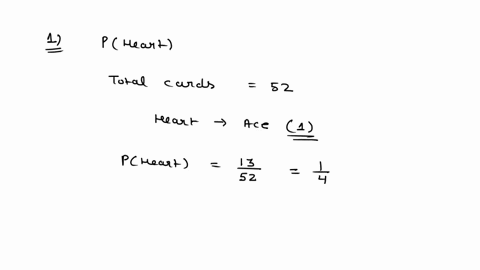 1) P(Heart)
Total cards = 52
Heart → Ace (1)
P(Heart) = 13/52 = 1/4